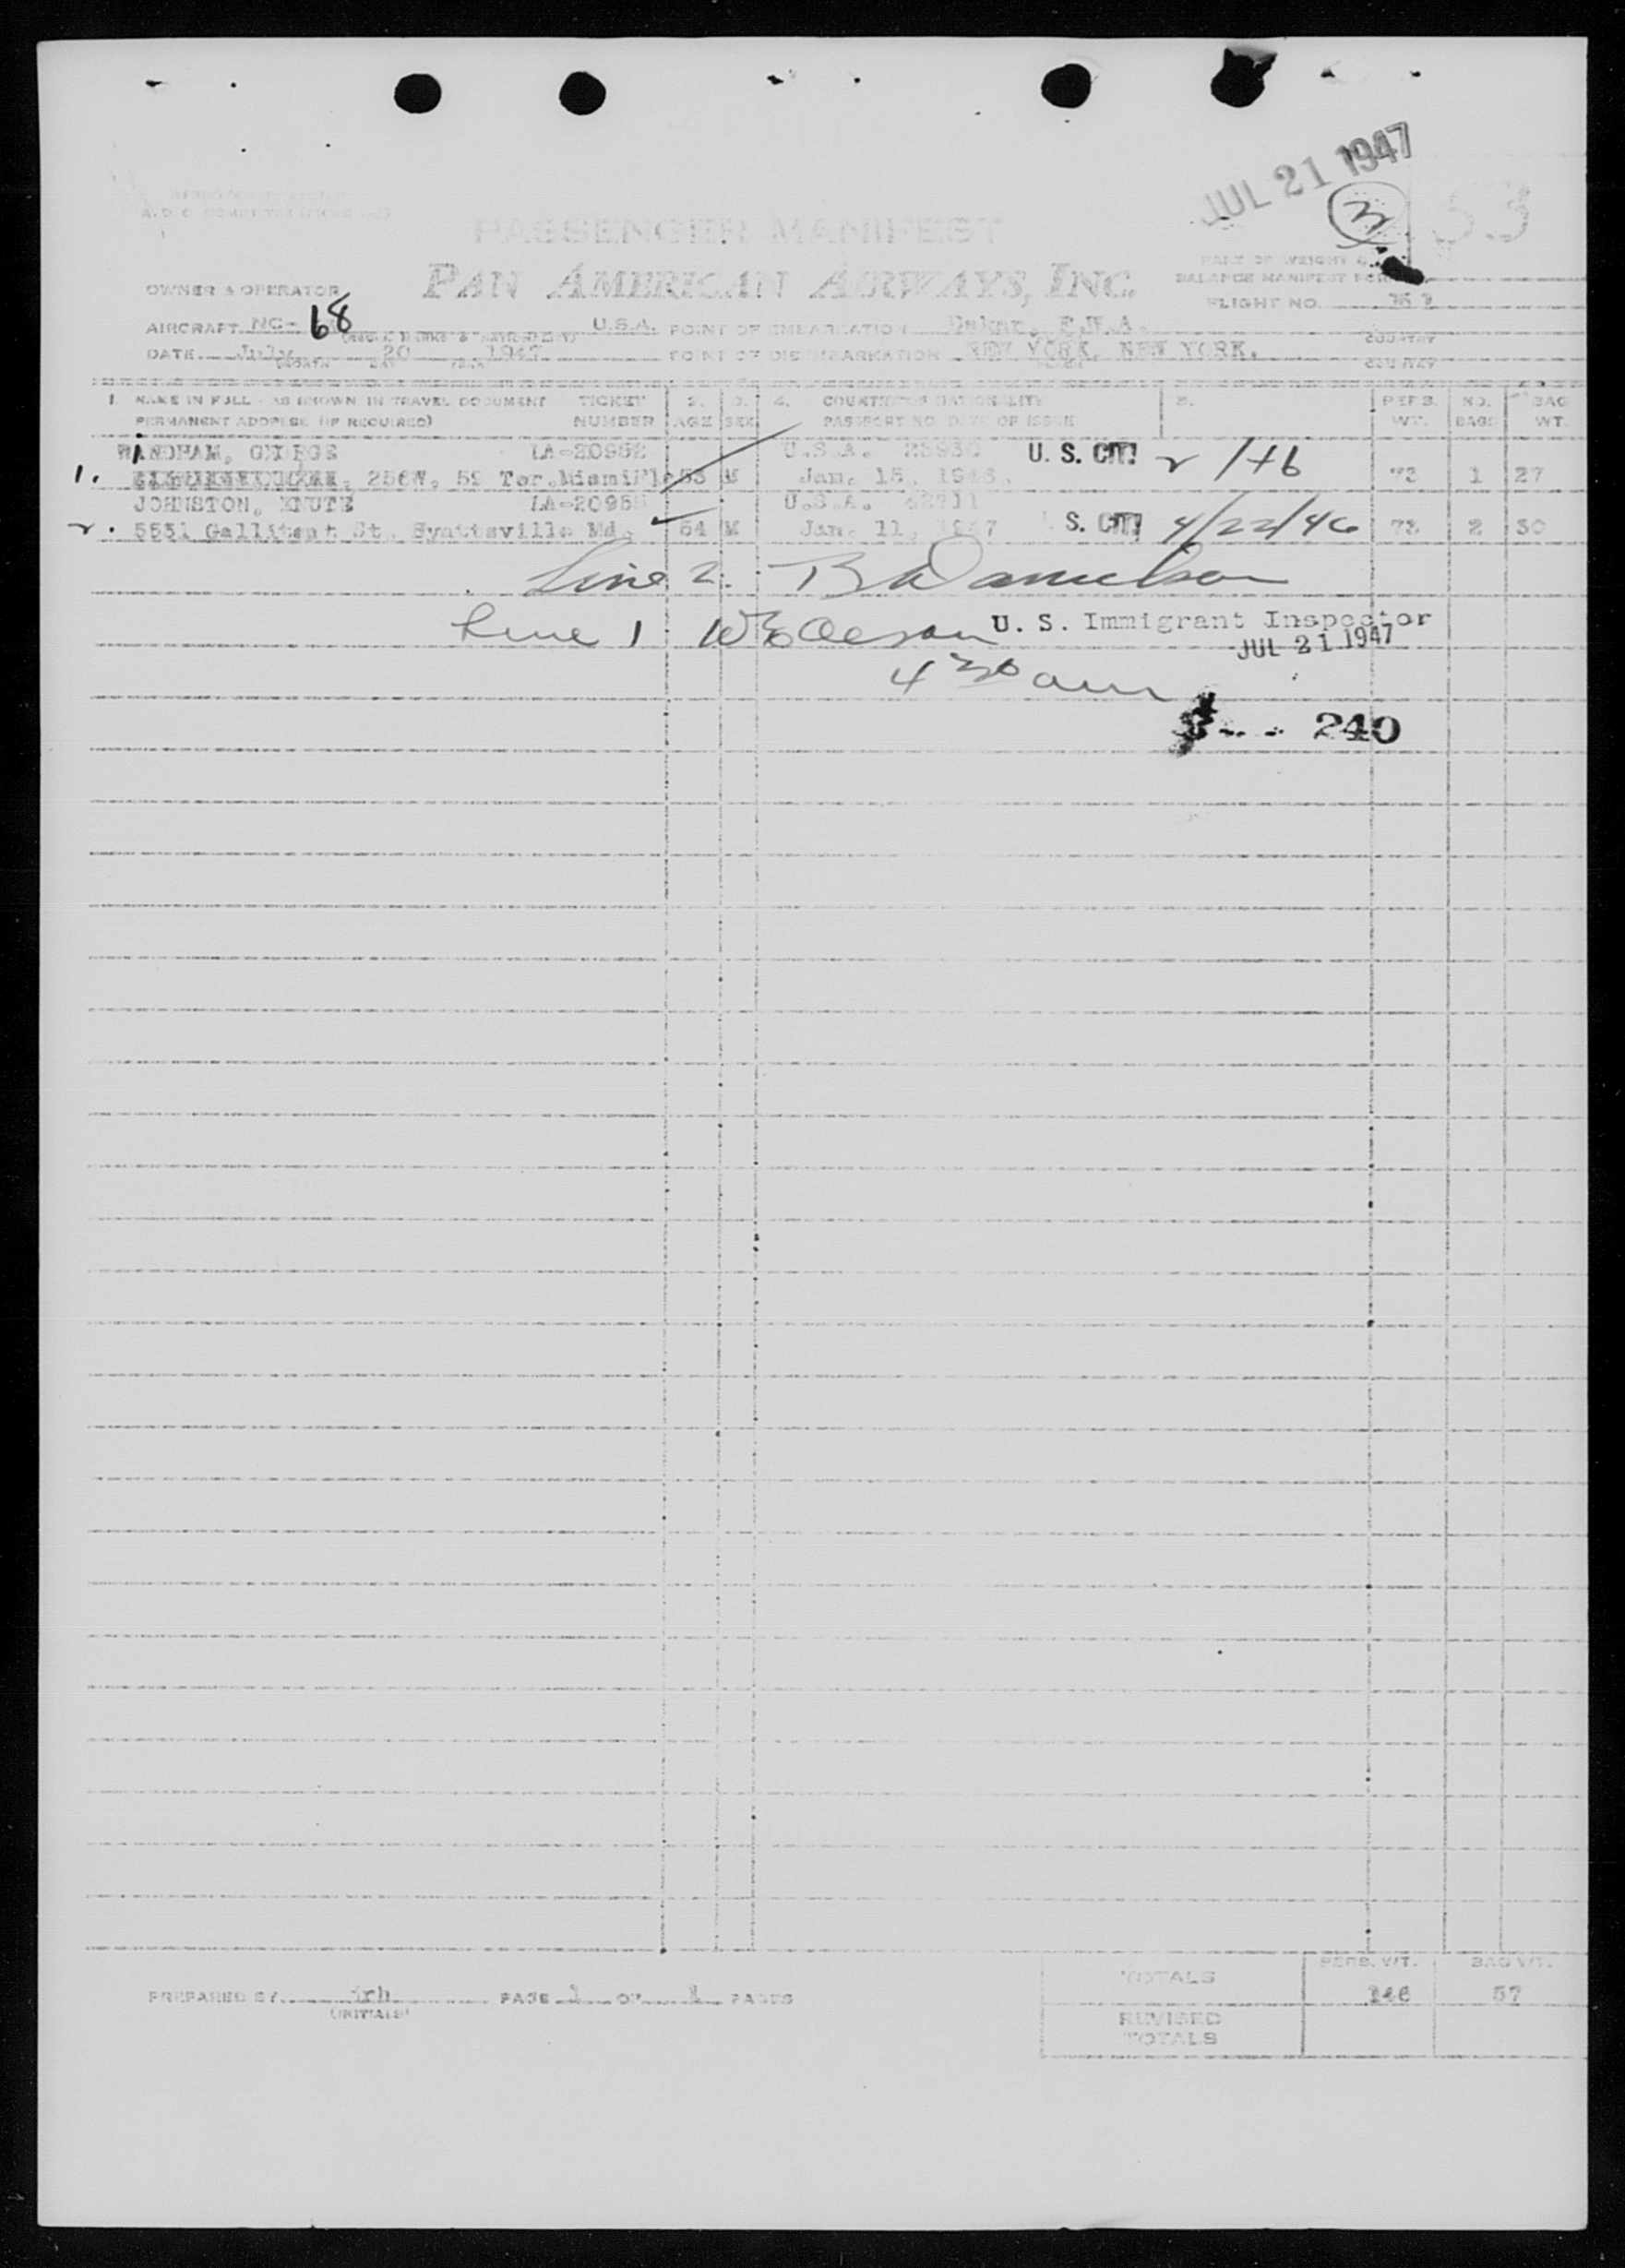 JUL 21 1947
3
53
PASSENGER MANIFEST
PAN AMERICAN AIRWAYS, INC.
PART OF WEIGHT &
BALANCE MANIFEST FOR
OWNER & OPERATOR
FLIGHT NO.
AIRCRAFT NC- 68 U.S.A. POINT OF EMBARKATION Dakar, F.W.A. COUNTRY
DATE July 20 1947 POINT OF DISEMBARKATION NEW YORK, NEW YORK.
(MONTH DAY YEAR COUNTRY
1. NAME IN FULL - AS SHOWN IN TRAVEL DOCUMENT TICKET 2. 3. 4. COUNTRY OF NATIONALITY 5. PERS. NO. BAG
PERMANENT ADDRESS (IF REQUIRED) NUMBER AGE SEX PASSPORT NO. DATE OF ISSUE WT. BAGS WT.
GEORGE LA-20952 U.S.A. U. S. CIT. 2/46
1. 256W, 59 Ter. Miami Fl 53 M Jan. 15, 1946. 73 1 27
JOHNSTON, KNUTE U.S.A.
2. 5531 Gallitent St. Hyattsville Md. 54 M Jan. 11, 1947 S. CIT. 4/22/46 73 2 30
Line 2. Danielson
Line 1 U. S. Immigrant Inspector
JUL 21 1947
4 30 am
240
TOTALS PERS. WT. BAG WT.
PREPARED BY jrh PAGE 1 OF 1 PAGES 146 57
(INITIALS)
REVISED
TOTALS